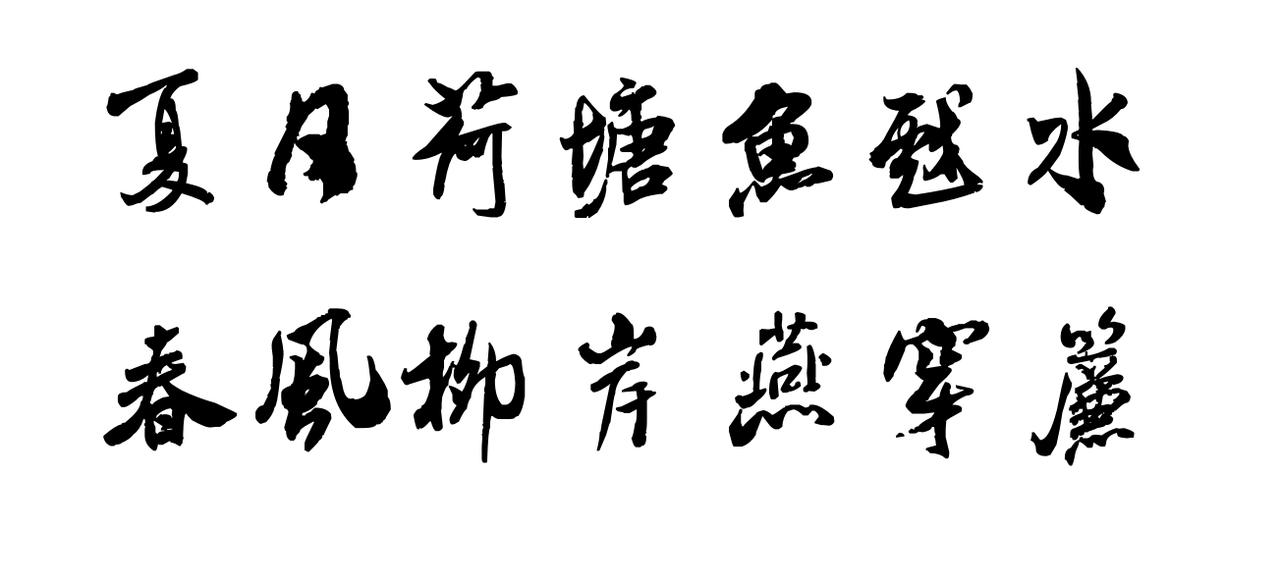 夏月荷塘魚戲水
春風柳岸燕穿簾